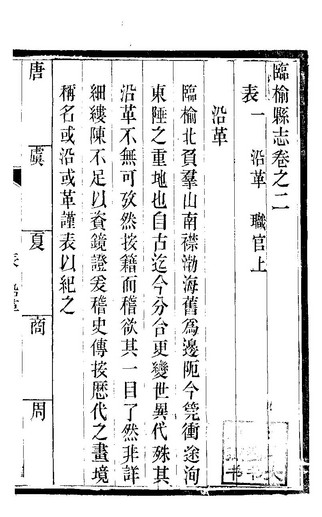 臨榆縣志卷之二
表一　沿革　職官上
沿革
臨榆北負羣山南襟渤海舊為邊阨今筦衝途洵
東陲之重地也自古迄今分合更變世異代殊其
沿革不無可攷然按籍而稽欲其一目了然非詳
細縷陳不足以資鏡證爰稽史傳按歷代之畫境
稱名或沿或革謹表以紀之
唐　虞　夏　商　周